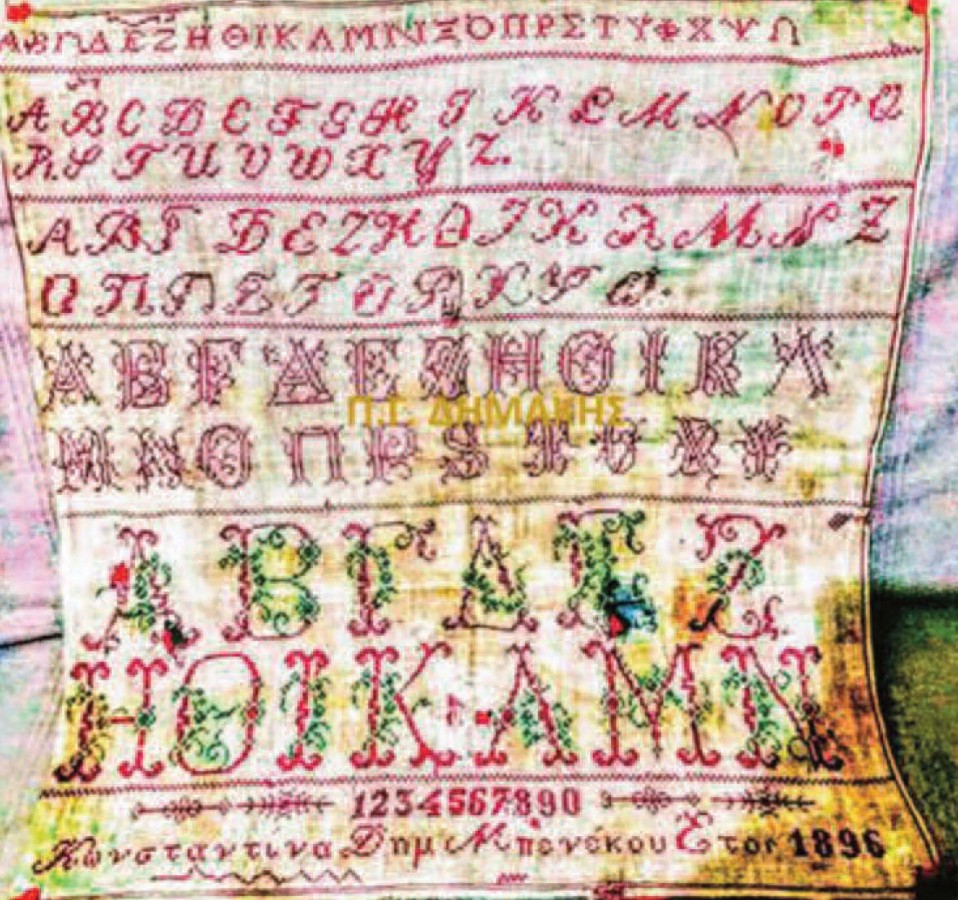 ΑΒΓΔΕΖΗΘΙΚΛΜΝΞΟΠΡΣΤΥΦΧΨΩ
A B C D E F G H I K L M N O P Q
R S T U V W X Y Z.
Α Β Γ Δ Ε Ζ Η Θ Ι Κ Λ Μ Ν Ζ
Ο Π Π Σ Τ Υ Φ Χ Ψ Ω
Α Β Γ Δ Ε Ζ Η Θ Ι Κ Λ
Π.Γ. ΔΗΜΑΚΗΣ
Μ Ν Ο Π Ρ S Τ U Χ Ψ
Α Β Γ Δ Ε Ζ
Η Θ Ι Κ Λ Μ Ν
1234567890
Κωνσταντίνα Δημ Μπενέκου Έτος 1896